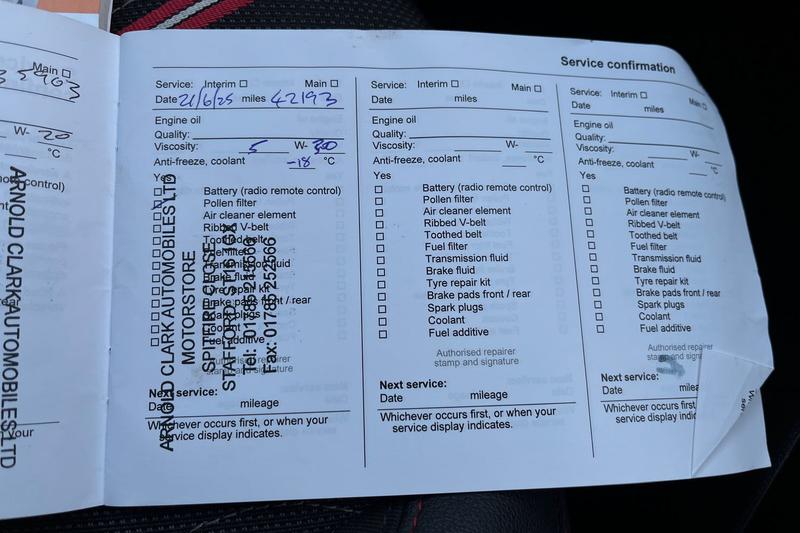 Main ☐
35963
W- 20
°C
ARNOLD CLARK AUTOMOBILES LTD
Service confirmation
Service: Interim ☐ Main ☐
Date 21/6/25 miles 42193
Engine oil
Quality:
Viscosity: 5 W- 30
Anti-freeze, coolant -18 °C
Yes
☐ Battery (radio remote control)
Pollen filter
☐ Air cleaner element
☐ Ribbed V-belt
☐ Toothed belt
☐ Fuel filter
☐ Transmission fluid
☐ Brake fluid
☐ Tyre repair kit
☐ Brake pads front / rear
☐ Spark plugs
☐ Coolant
☐ Fuel additive
Authorised repairer
stamp and signature
Next service:
Date mileage
Whichever occurs first, or when your
service display indicates.
ARNOLD CLARK AUTOMOBILES LTD
MOTORSTORE
Service: Interim ☐ Main ☐
Date miles
Engine oil
Quality:
Viscosity: W-
Anti-freeze, coolant °C
Yes
☐ Battery (radio remote control)
☐ Pollen filter
☐ Air cleaner element
☐ Ribbed V-belt
☐ Toothed belt
☐ Fuel filter
☐ Transmission fluid
☐ Brake fluid
☐ Tyre repair kit
☐ Brake pads front / rear
☐ Spark plugs
☐ Coolant
☐ Fuel additive
Authorised repairer
stamp and signature
Next service:
Date mileage
Whichever occurs first, or when your
service display indicates.
Service: Interim ☐ Main ☐
Date miles
Engine oil
Quality:
Viscosity: W-
Anti-freeze, coolant °C
Yes
☐ Battery (radio remote control)
☐ Pollen filter
☐ Air cleaner element
☐ Ribbed V-belt
☐ Toothed belt
☐ Fuel filter
☐ Transmission fluid
☐ Brake fluid
☐ Tyre repair kit
☐ Brake pads front / rear
☐ Spark plugs
☐ Coolant
☐ Fuel additive
Authorised repairer
stamp and signa
Next service:
Date milea
Whichever occurs first
service display indic